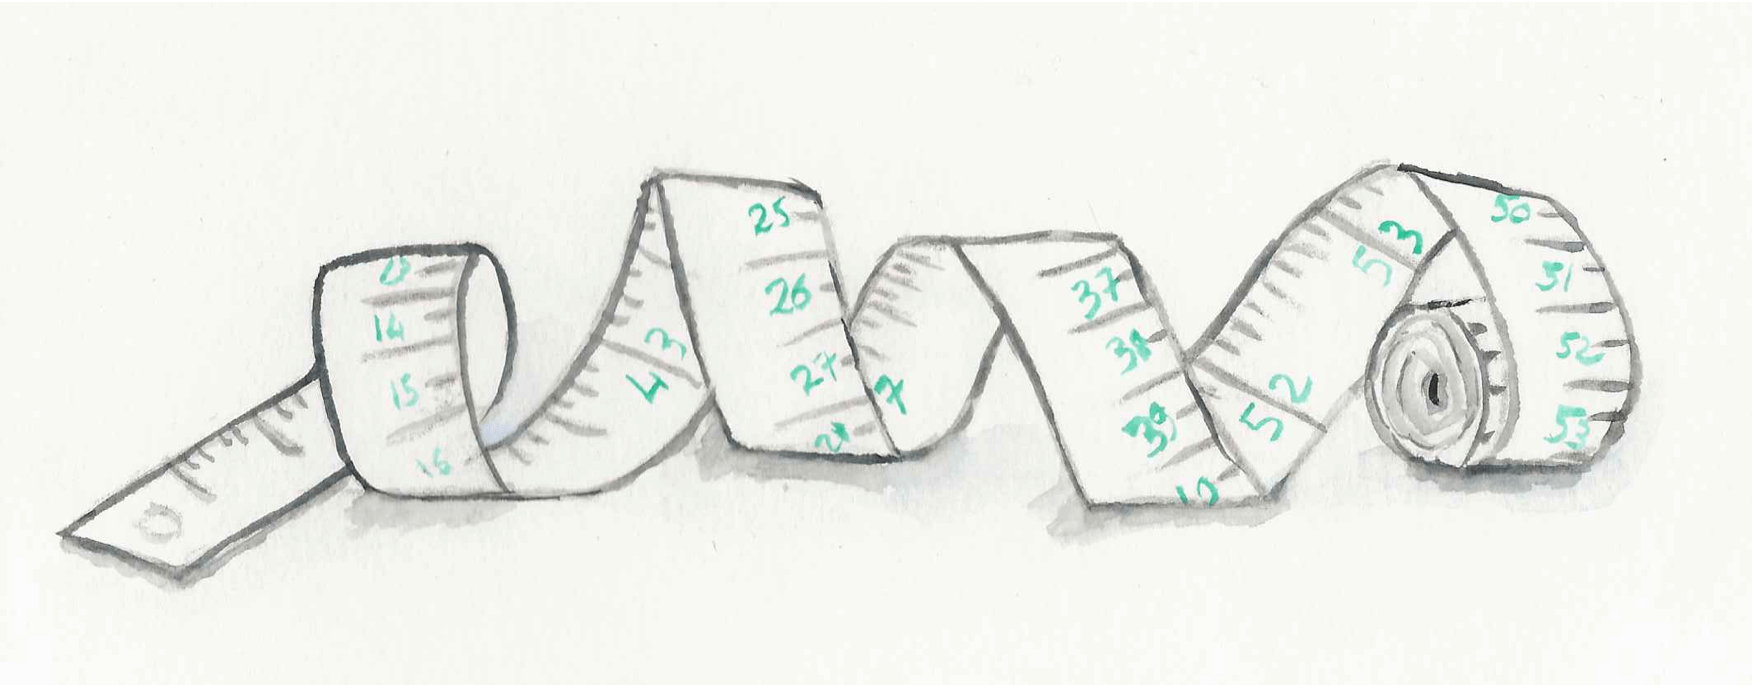 13
14
15
16
3
4
25
26
27
28
7
37
38
39
10
2
5
3
5
50
51
52
53